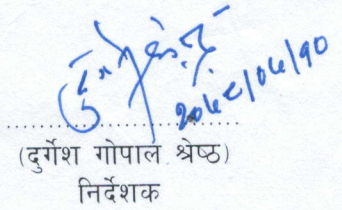 २०७८/०५/१०
(दुर्गेश गोपाल श्रेष्ठ)
निर्देशक